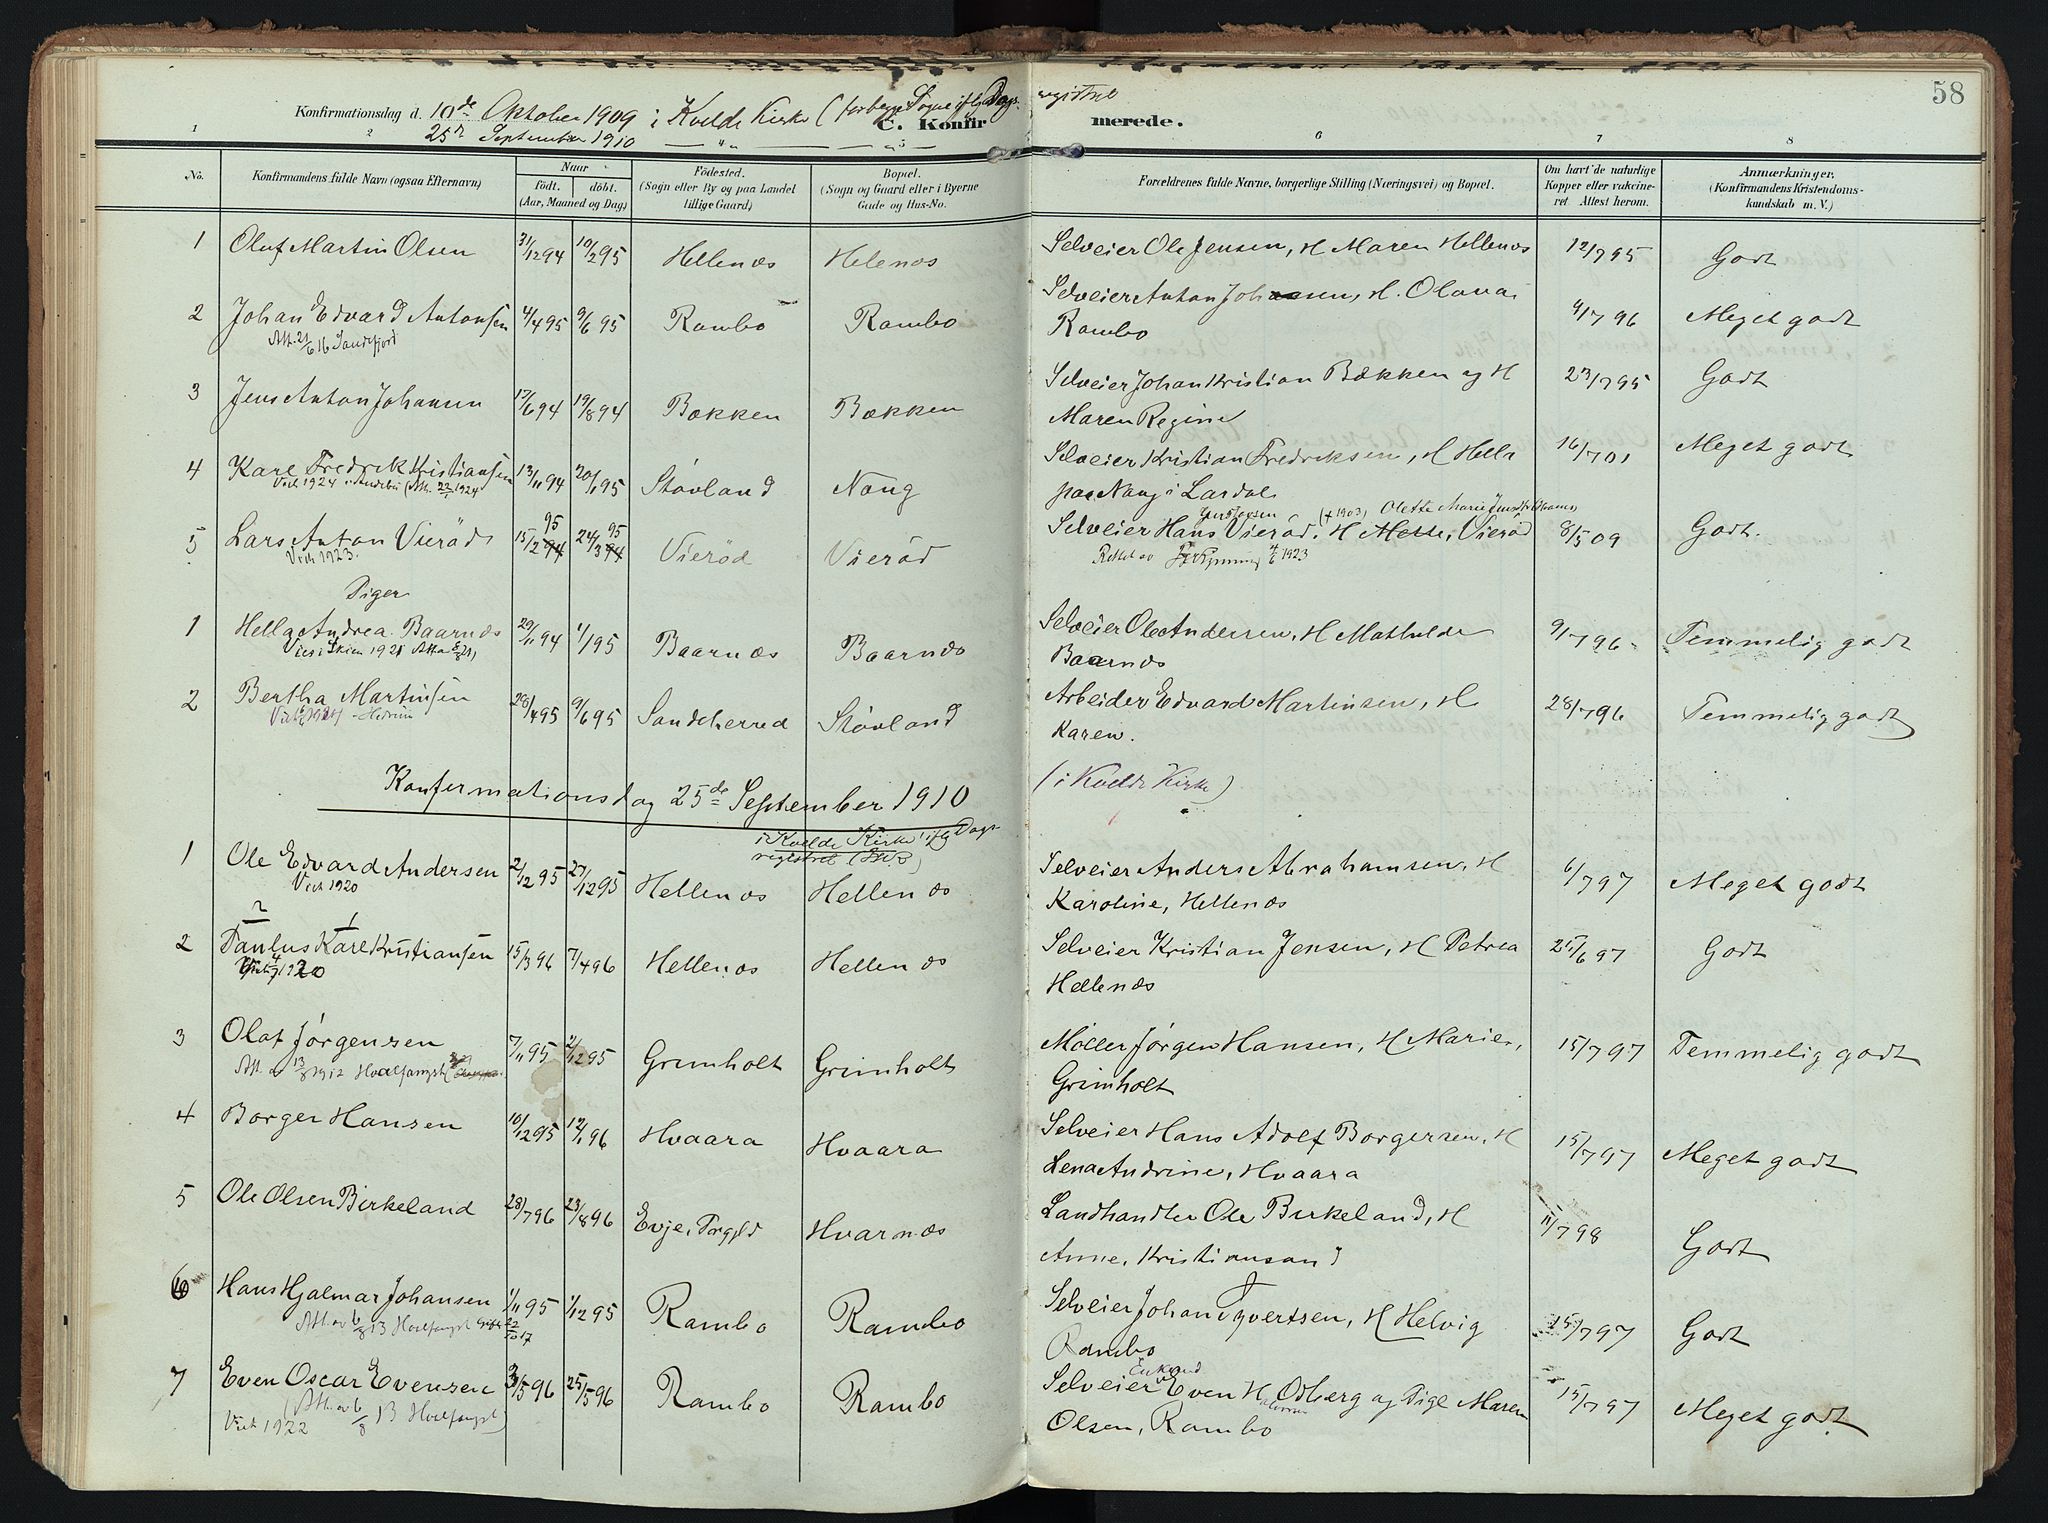 58
Konfirmationsdag d. 10de Oktober 1909 i Kvelde Kirke (for begge Sogne ifg Dags-registret
25de September 1910
C. Konfirmerede.
1 2 6 7 8
No.
Konfirmandens fulde Navn (ogsaa Efternavn)
Naar
født. døbt.
(Aar, Maaned og Dag.)
Fødested.
(Sogn eller By og paa Landet tillige Gaard)
Bopæl.
(Sogn og Gaard eller i Byerne Gade og Hus-No.
Forældrenes fulde Navne, borgerlige Stilling (Næringsvei) og Bopæl.
Om havt de naturlige Kopper eller vakcineret. Attest herom.
Anmærkninger.
(Konfirmandens Kristendomskundskab m. V.)
1 Olaf Martin Olsen 31/12 94 10/2 95 Hellenæs Helenæs Selveier Ole Jensen, H Maren Hellenæs 12/7 95 Godt
2 Johan Edvard Antonsen 4/4 95 9/6 95 Rambo Rambo Selveier Anton Johansen, H. Olava Rambo 9/7 96 Meget godt
Att. 21/6 16 Sandefjord
3 Jens Anton Johansen 17/6 94 19/8 94 Bækken Bækken Selveier Johan Kristian Bækken og H 23/7 95 Godt
Maren Regine
4 Karl Fredrik Kristiansen 13/11 94 20/1 95 Stövland Nøug Selveier Kristian Fredriksen, H Hella 16/7 01 Meget godt
Viet 1924 i Andebu (Att. 22/1 1924 paa Naug i Lardal
5 Lars Anton Vieröd 15/2 94 95 24/3 94 95 Vieröd Vieröd Selveier Hans Vieröd, H Mette, Vieröd 8/5 09 Godt.
Viet 1923. (+ 1903) Olette Marie
Rettet av 4/6 1923
Piger
1 Hella Andrea Baarnæs 29/11 94 1/1 95 Baarnæs Baarnæs Selveier Ole Andersen, H Mathilde 9/7 96 Temmelig godt
Vies i Skien 1921 Baarnæs
2 Bertha Martinsen 28/4 95 9/6 95 Sandeherred Stövland Arbeider Edvard Martinsen, H 28/7 96 Temmelig godt
Hedrum Karen.
Konfermationsdag 25de September 1910 (i Kvelde Kirke)
i Kvelde Kirke ifg Dags-
registret
1 Ole Edvard Andersen 2/12 95 27/12 95 Hellenæs Hellenæs Selveier Anders Abrahamsen, H 6/7 97 Meget godt
Viet 1920 Karoline, Hellenæs
2 1
2 Paulus Karl Kristiansen 15/3 96 7/4 96 Hellenæs Hellenæs Selveier Kristian Jensen, H Petrea 25/6 97 Godt
1920 Hellenæs
3 Olaf Jørgensen 7/11 95 2/12 95 Grimholt Grimholt Møller Jørgen Hansen, H Marie, 15/7 97 Temmelig godt
Att. av 13/8 1912 Hvalfangst Grimholt
4 Borger Hansen 10/12 95 12/1 96 Hvaara Hvaara Selveier Hans Adolf Borgersen, H 15/7 97 Meget godt
Lena Andrine, Hvaara
5 Ole Olsen Birkeland 28/7 96 23/8 96 Evje, Hvarnæs Landhandler Ole Birkeland, H 11/7 98 Godt
Anne, Kristiansand
6 Hans Hjalmar Johansen 1/11 95 1/12 95 Rambo Rambo Selveier Johan Iyvertsen, H Helvig 15/7 97 Godt
Att. av 6/8 13 Hvalfangst Gift 22/10 17 Rambo
7 Even Oscar Evensen 3/5 96 25/5 96 Rambo Rambo Selveier Even H Odberg og Pige Maren 15/7 97 Meget godt
Enkemand
(Att. av 6/8 13 Hvalfangst) Olsen, Rambo
Viet 1922